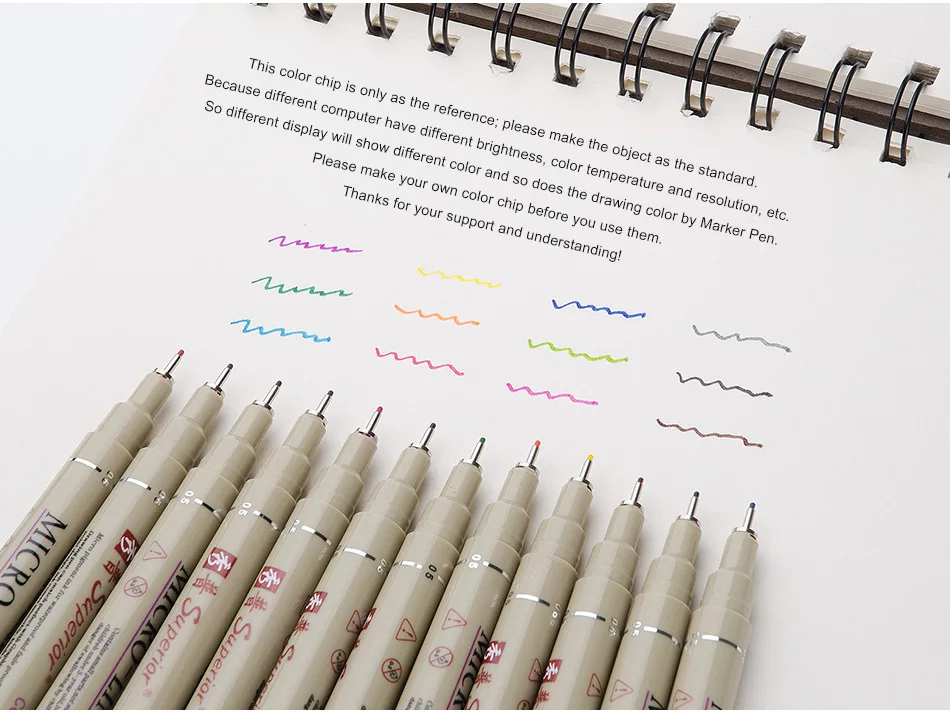 This color chip is only as the reference; please make the object as the standard.
Because different computer have different brightness, color temperature and resolution, etc.
So different display will show different color and so does the drawing color by Marker Pen.
Please make your own color chip before you use them.
Thanks for your support and understanding!
0.5
0.5
0.5
0.5
05
05
MICRO
Micro pigment ink for waterproof and fade proof
秀普 Superior
MICRO
秀普 Superior®
秀普
秀
秀
秀
MICRO